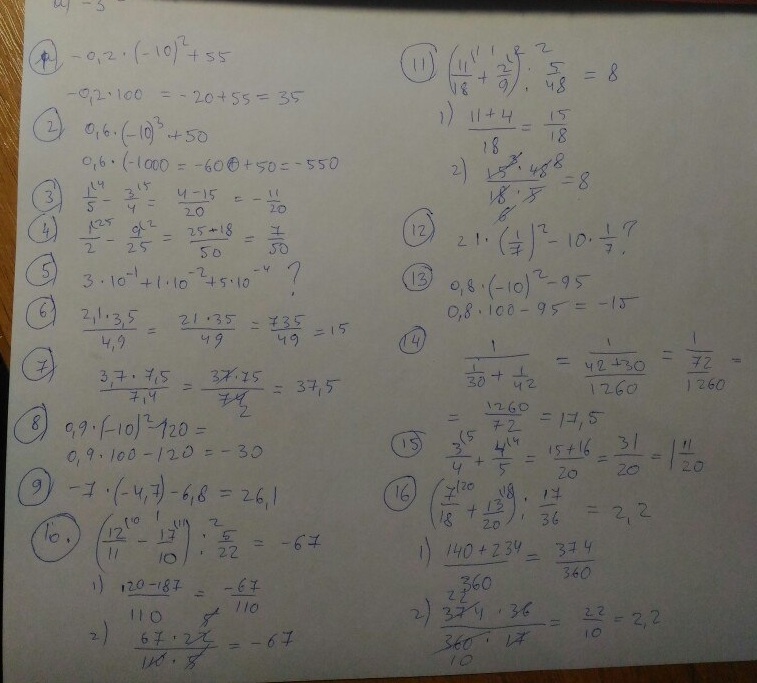 -3
1) -0,2·(-10)² + 55
-0,2·100 = -20+55 = 35
2) 0,6·(-10)³ + 50
0,6·(-1000 = -600 + 50 = -550
3) 1/5 - 3/4 = (4-15)/20 = -11/20
4) 1/2 - 9/25 = (25-18)/50 = 7/50
5) 3·10⁻¹ + 1·10⁻² + 5·10⁻⁴ ?
6) (2,1·3,5)/4,9 = (21·35)/49 = 735/49 = 15
7) (3,7·7,5)/7,4 = (37·75)/74 = 37,5
2
8) 0,9·(-10)² - 120 =
0,9·100 - 120 = -30
9) -7·(-4,7) - 6,8 = 26,1
10. (12/11 - 17/10) : 5/22 = -67
1) (120-187)/110 = -67/110
2) (67·22)/(110·5) = -67
11) (11/18 + 2/9) : 5/48 = 8
1) (11+4)/18 = 15/18
2) (15·48)/(18·5) = 8
12) 21·(1/7)² - 10·1/7 ?
13) 0,8·(-10)² - 95
0,8·100 - 95 = -15
14) 1/(1/30 + 1/42) = 1/((42+30)/1260) = 1/(72/1260) =
= 1260/72 = 17,5
15) 3/4 + 4/5 = (15+16)/20 = 31/20 = 1 11/20
16) (7/18 + 13/20) : 17/36 = 2,2
1) (140+234)/360 = 374/360
2) (374·36)/(360·17) = 22/10 = 2,2